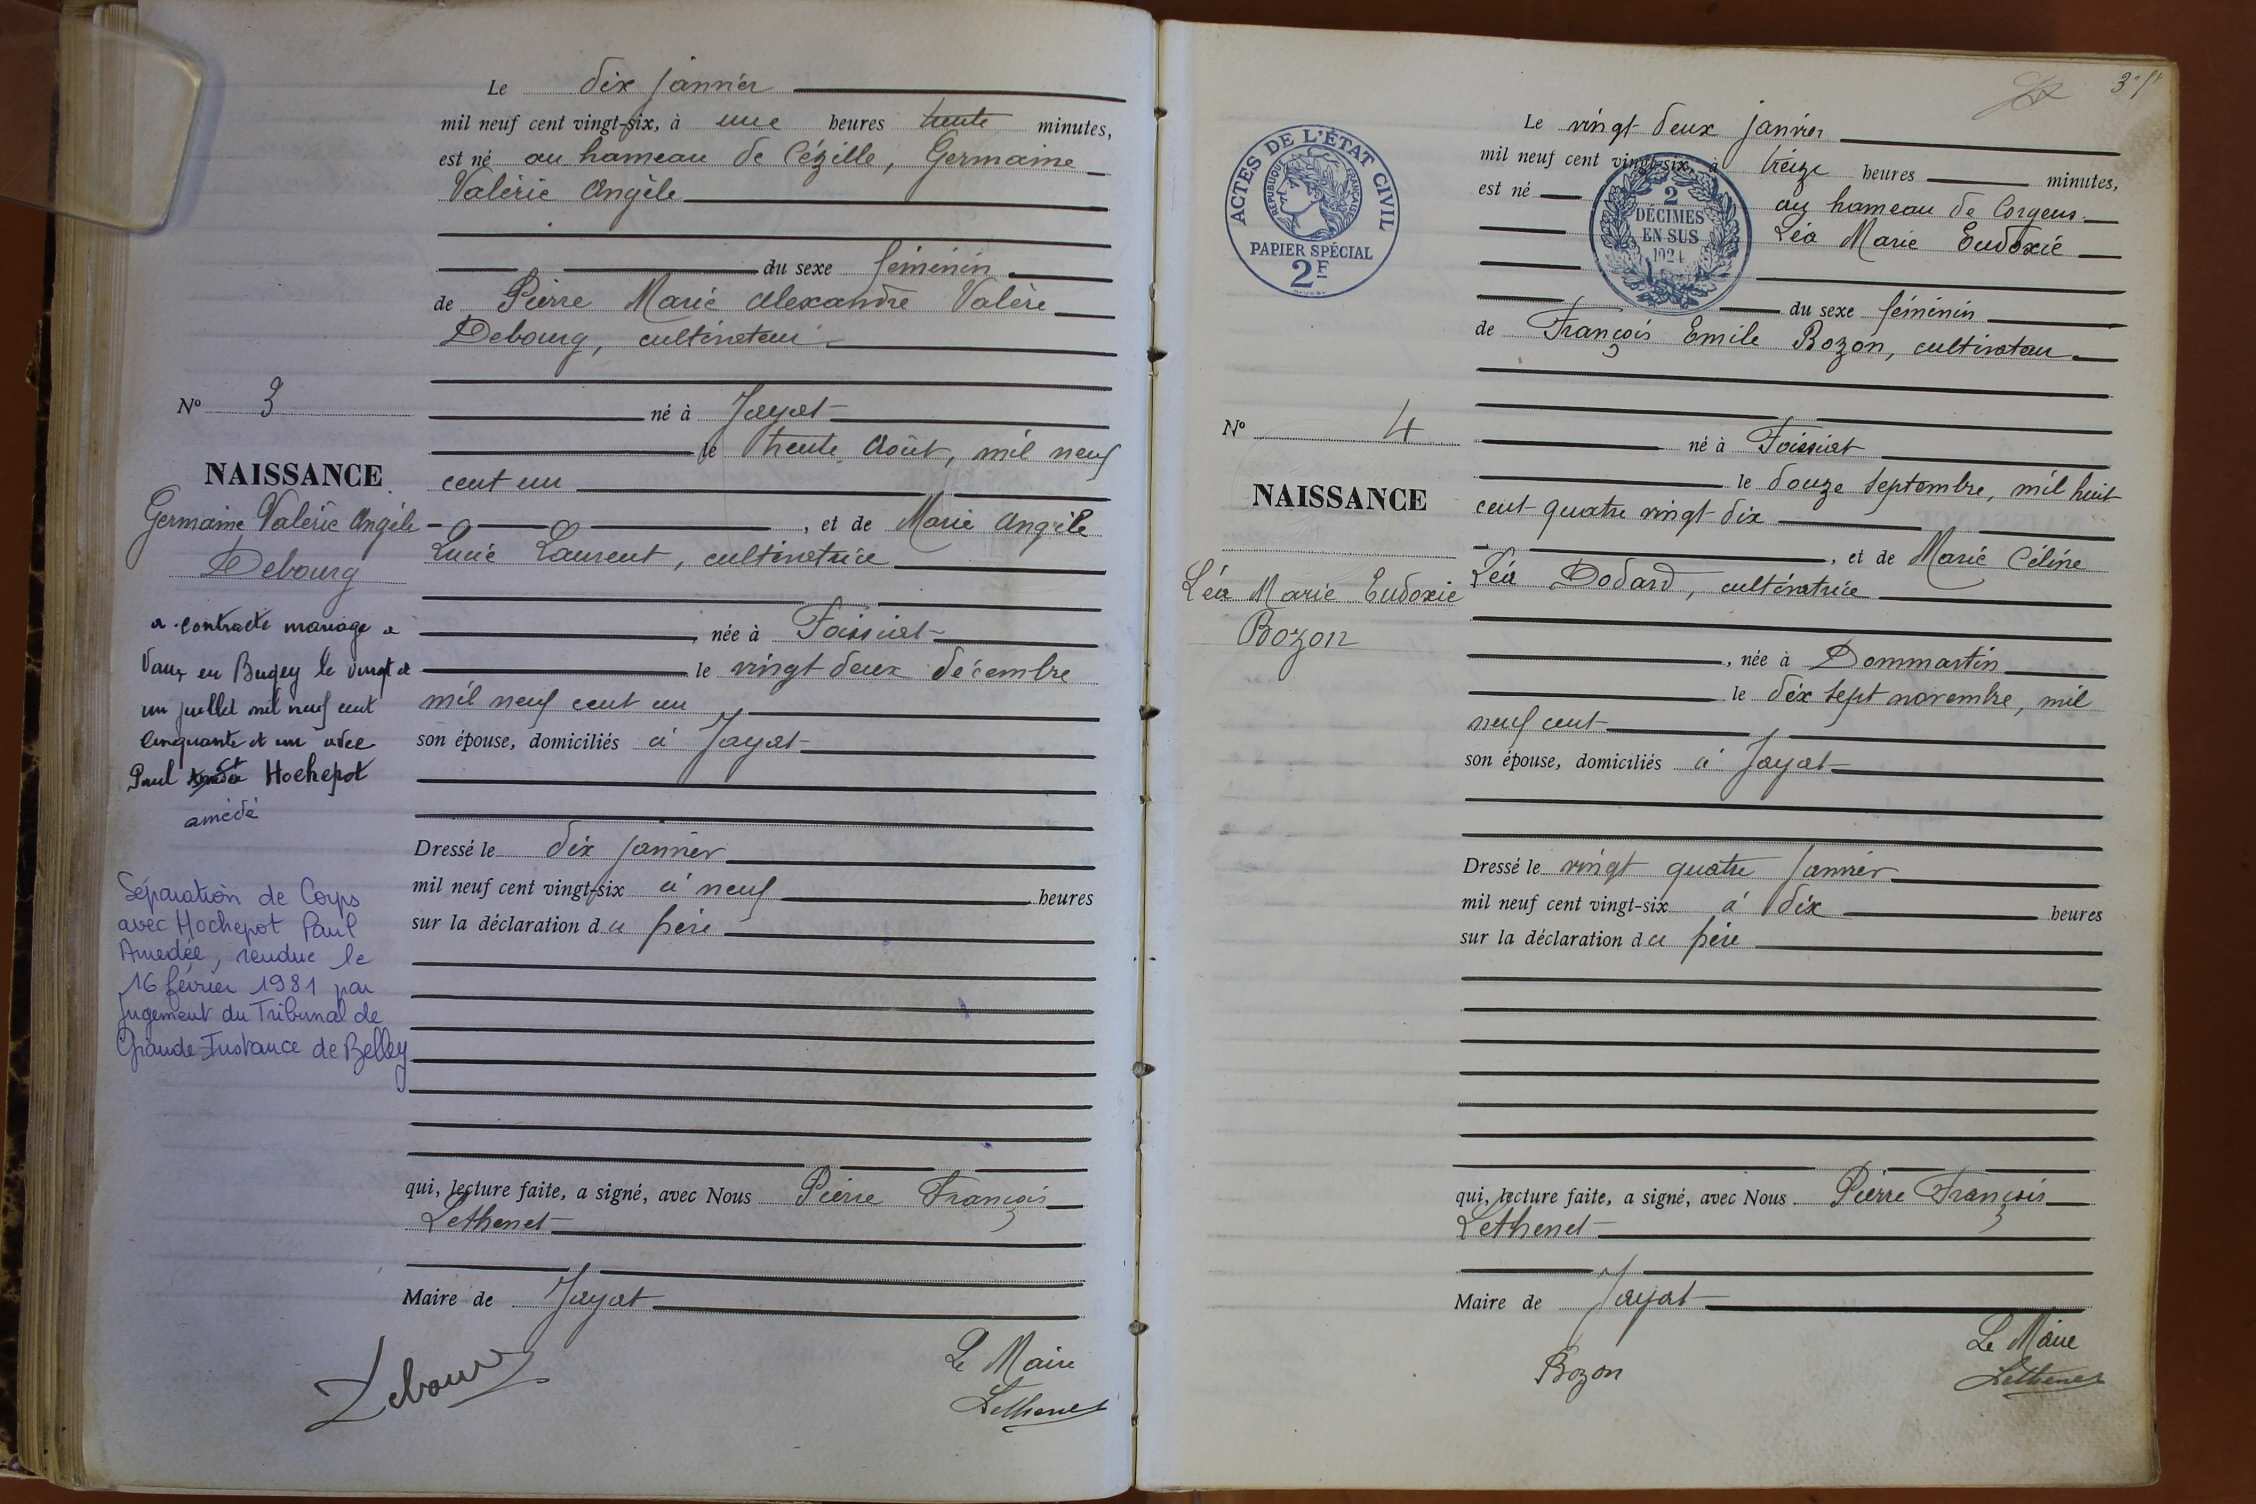 Le dix janvier
mil neuf cent vingt-six, à une heures trente minutes,
est né au hameau de Cézille, Germaine
Valérie Angèle
du sexe féminin
de Pierre Marie Alexandre Valère
Debourg, cultivateur
né à Jayat
le trente Août, mil neuf
cent un
, et de Marie Angèle
Lucie Laurent, cultivatrice
, née à Foissiat
le vingt deux décembre
mil neuf cent un
son épouse, domiciliés à Jayat
Dressé le dix janvier
mil neuf cent vingt-six à neuf heures
sur la déclaration du père
qui, lecture faite, a signé, avec Nous Pierre François
Lethenet
Maire de Jayat
Debourg
Le Maire
Lethenet
N° 3
NAISSANCE
Germaine Valérie Angèle
Debourg
a contracté mariage a
Vaux en Bugey le vingt et
un juillet mil neuf cent
cinquante et un avec
Paul Hochepot
amédé
Séparation de Corps
avec Hochepot Paul
Amedée, rendue le
16 février 1981 par
Jugement du Tribunal de
Grande Instance de Belley
ACTES DE L'ÉTAT CIVIL
RÉPUBLIQUE FRANÇAISE
PAPIER SPÉCIAL
2F
2
DÉCIMES
EN SUS
1924
Le vingt deux janvier
mil neuf cent vingt-six, à treize heures minutes,
est né au hameau de Corgens
Léa Marie Eudoxie
du sexe féminin
de François Emile Bozon, cultivateur
né à Foissiat
le douze septembre, mil huit
cent quatre vingt dix
, et de Marie Céline
Léa Dodard, cultivatrice
, née à Dommartin
le dix sept novembre, mil
neuf cent
son épouse, domiciliés à Jayat
Dressé le vingt quatre janvier
mil neuf cent vingt-six à dix heures
sur la déclaration du père
qui, lecture faite, a signé, avec Nous Pierre François
Lethenet
Maire de Jayat
Bozon
Le Maire
Lethenet
N° 4
NAISSANCE
Léa Marie Eudoxie
Bozon